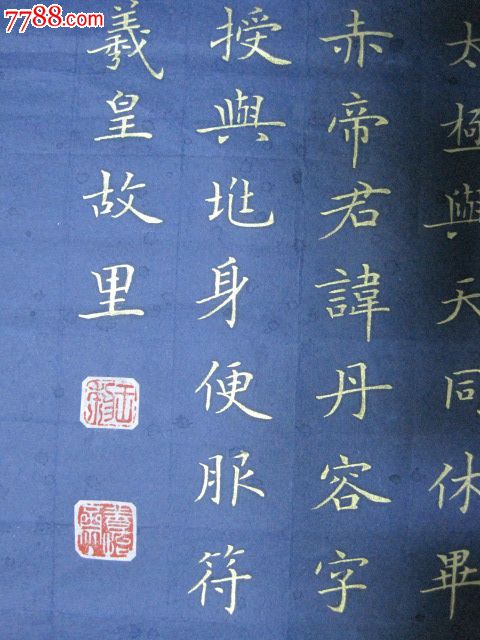 7788.com
中国收藏热线
太極與天同休畢
赤帝君諱丹容字
授與身便服符
羲皇故里